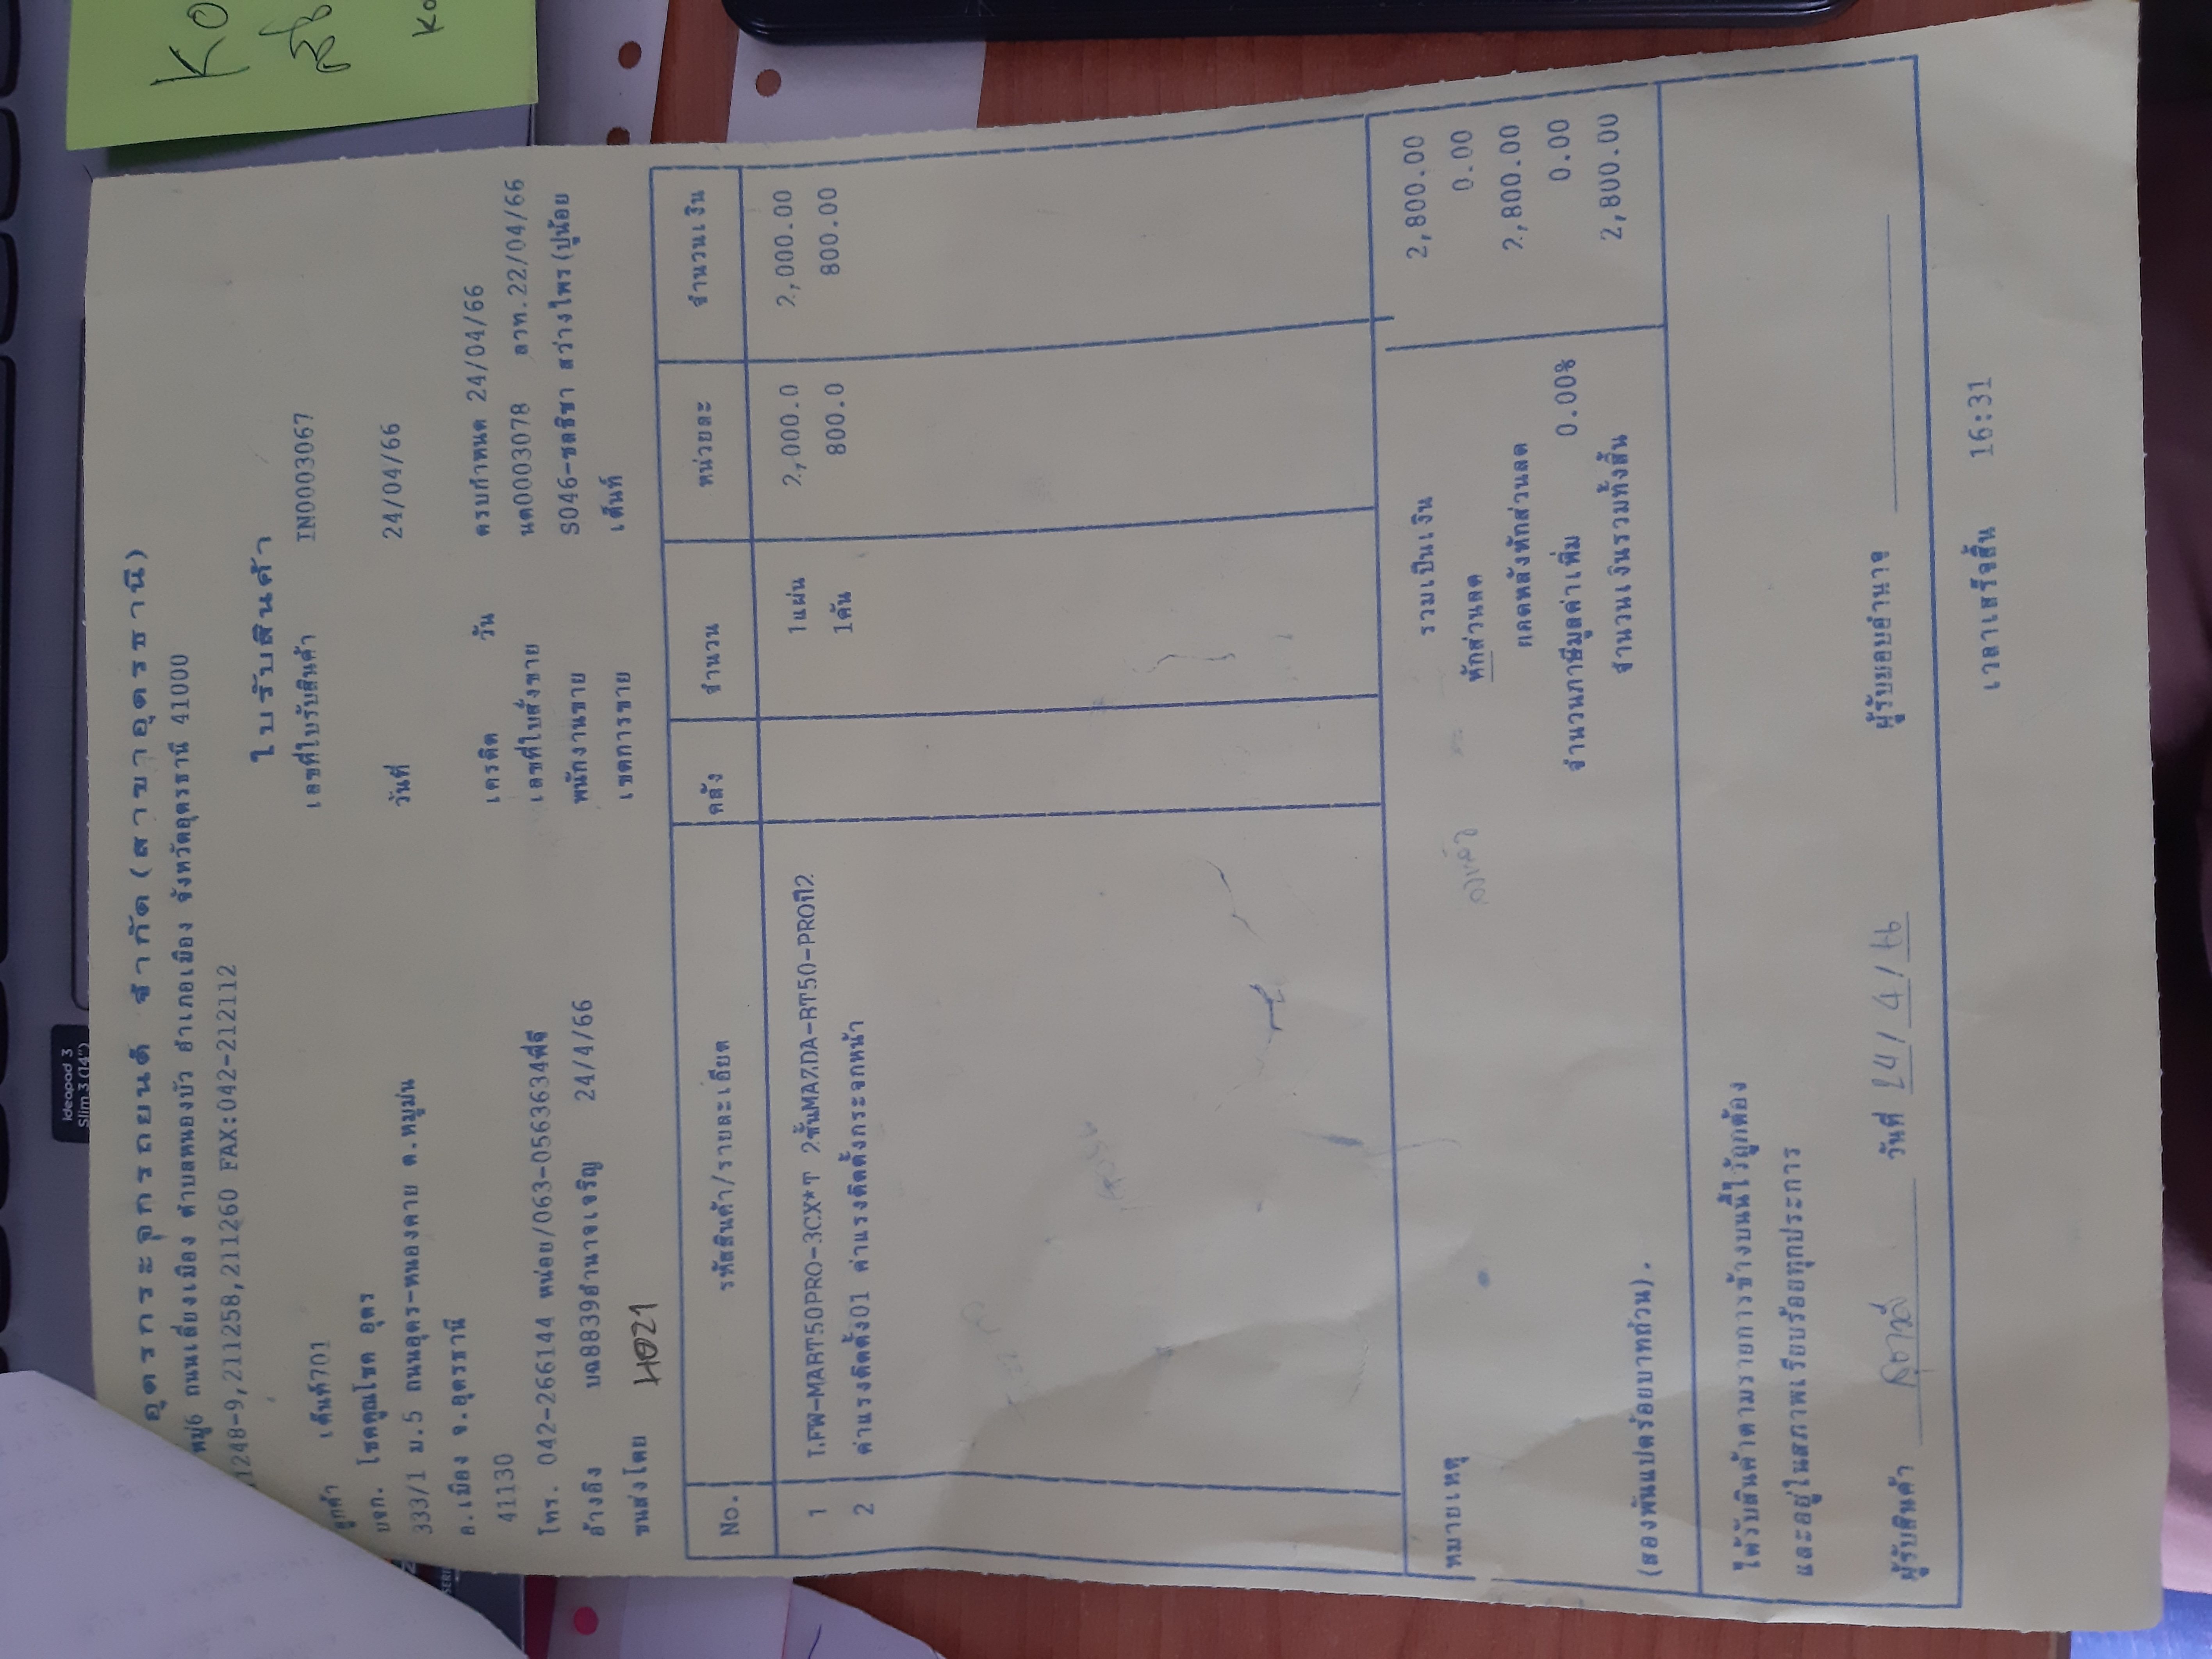 อุดรกระจกรถยนต์ จำกัด(สาขาอุดรธานี)
หมู่6 ถนนเลี่ยงเมือง ตำบลหนองบัว อำเภอเมือง จังหวัดอุดรธานี 41000
11248-9,211258,211260 FAX:042-212112
ใบรับสินค้า
ลูกค้า เต็นท์701 เลขที่ใบรับสินค้า IN0003067
บจก. โชคคูณโชค อุดร
333/1 ม.5 ถนนอุดร-หนองคาย ต.หมูม่น วันที่ 24/04/66
อ.เมือง จ.อุดรธานี
41130 เครดิต วัน ครบกำหนด 24/04/66
โทร. 042-266144 หน่อย/063-0563634พี่จี เลขที่ใบสั่งขาย นต0003078 ลวท.22/04/66
อ้างอิง บฉ8839อำนาจเจริญ 24/4/66 พนักงานขาย S046-ชลธิชา สว่างไพร(ปูน้อย
ขนส่งโดย H021 เขตการขาย เต็นท์
No. รหัสสินค้า/รายละเอียด คลัง จำนวน หน่วยละ จำนวนเงิน
1 LFW-MABT50PRO-3CX*T 2ชั้นMAZDA-BT50-PROปี12 1แผ่น 2,000.0 2,000.00
2 ค่าแรงติดตั้ง01 ค่าแรงติดตั้งกระจกหน้า 1คัน 800.0 800.00
หมายเหตุ รวมเป็นเงิน 2,800.00
หักส่วนลด 0.00
ยอดหลังหักส่วนลด 2,800.00
จำนวนภาษีมูลค่าเพิ่ม 0.00% 0.00
(สองพันแปดร้อยบาทถ้วน). จำนวนเงินรวมทั้งสิ้น 2,800.00
ได้รับสินค้าตามรายการข้างบนนี้ไว้ถูกต้อง
และอยู่ในสภาพเรียบร้อยทุกประการ
ผู้รับสินค้า วันที่ 24/4/66 ผู้รับมอบอำนาจ
เวลาเสร็จสิ้น 16:31
ideapad 3
Slim 3 (14")
KO